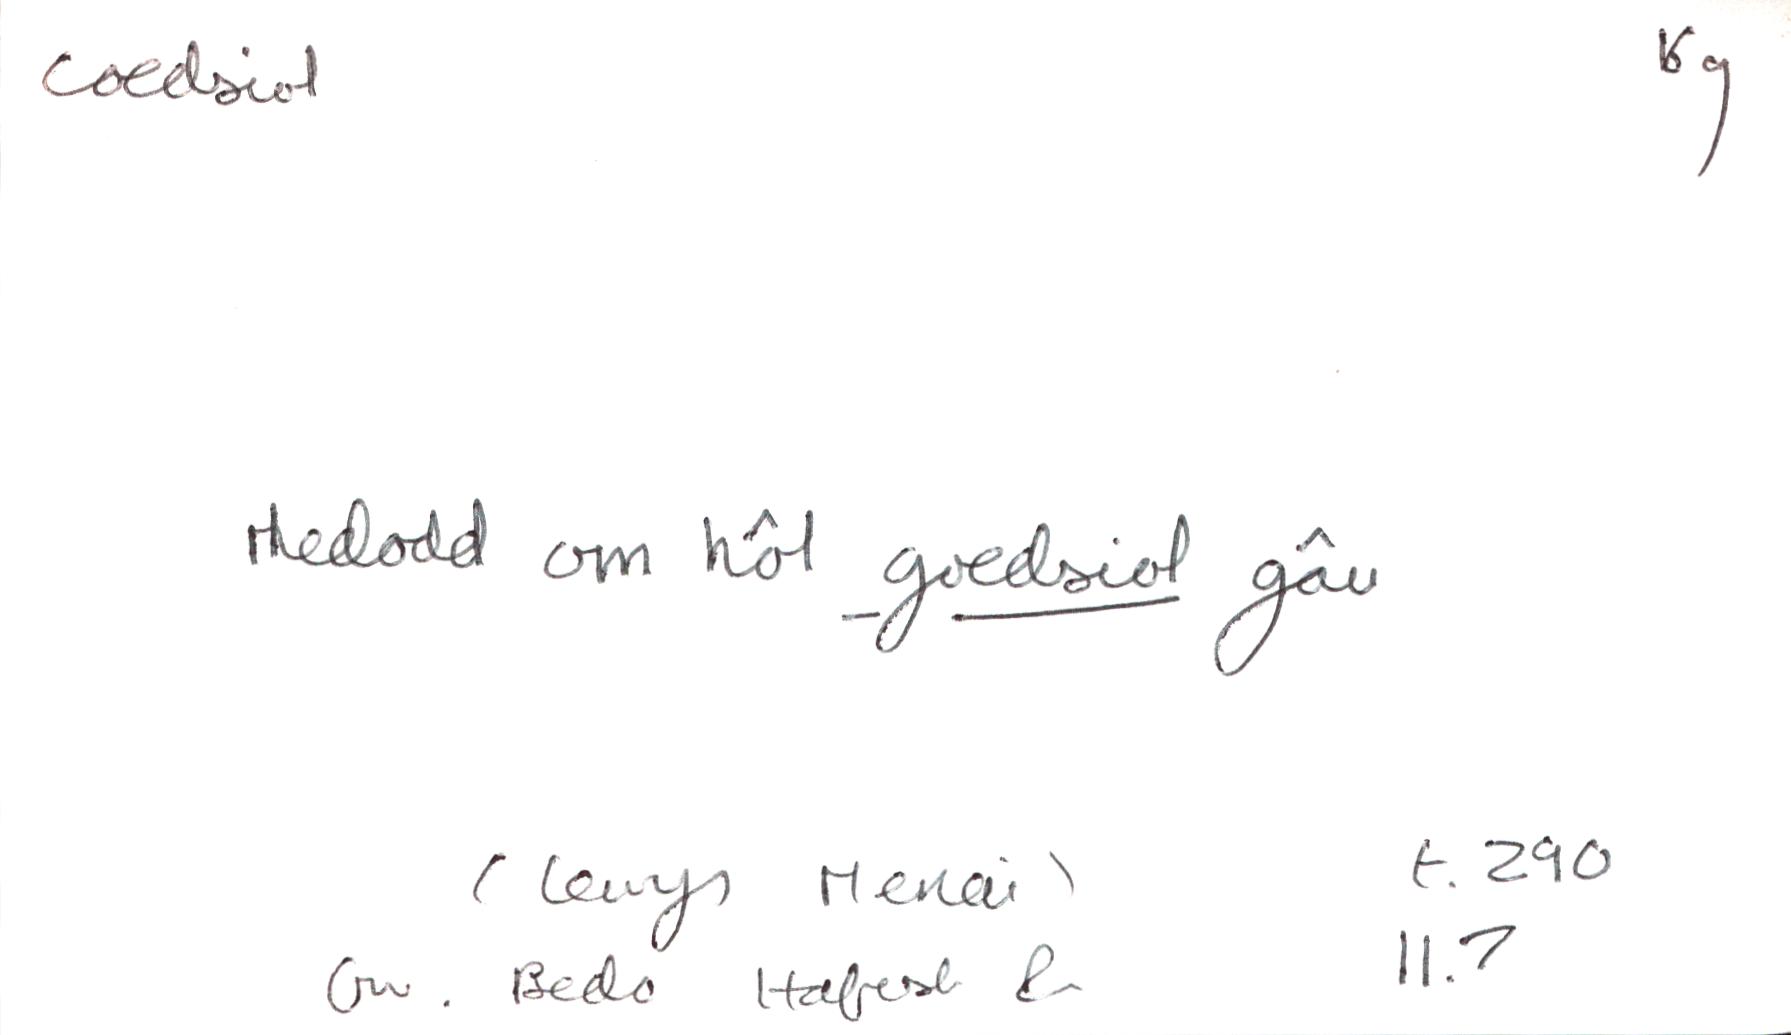 coedsiol
Medodd om hôl goedsiol gâu
(Lewys Menai) t. 290
Gw. Bedo Hafesb & 11.7